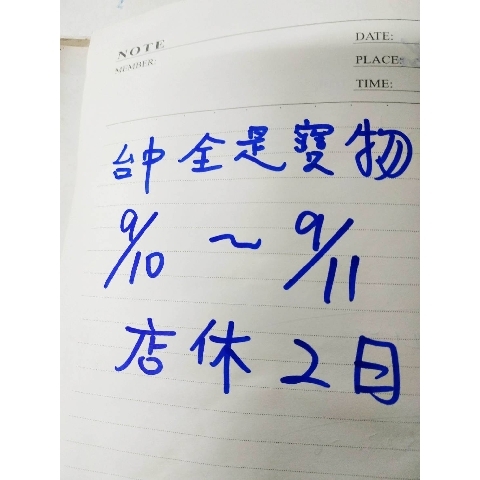 NOTE
MEMBER:
DATE:
PLACE:
TIME:
台中全是寶物
9/10 ~ 9/11
店休2日